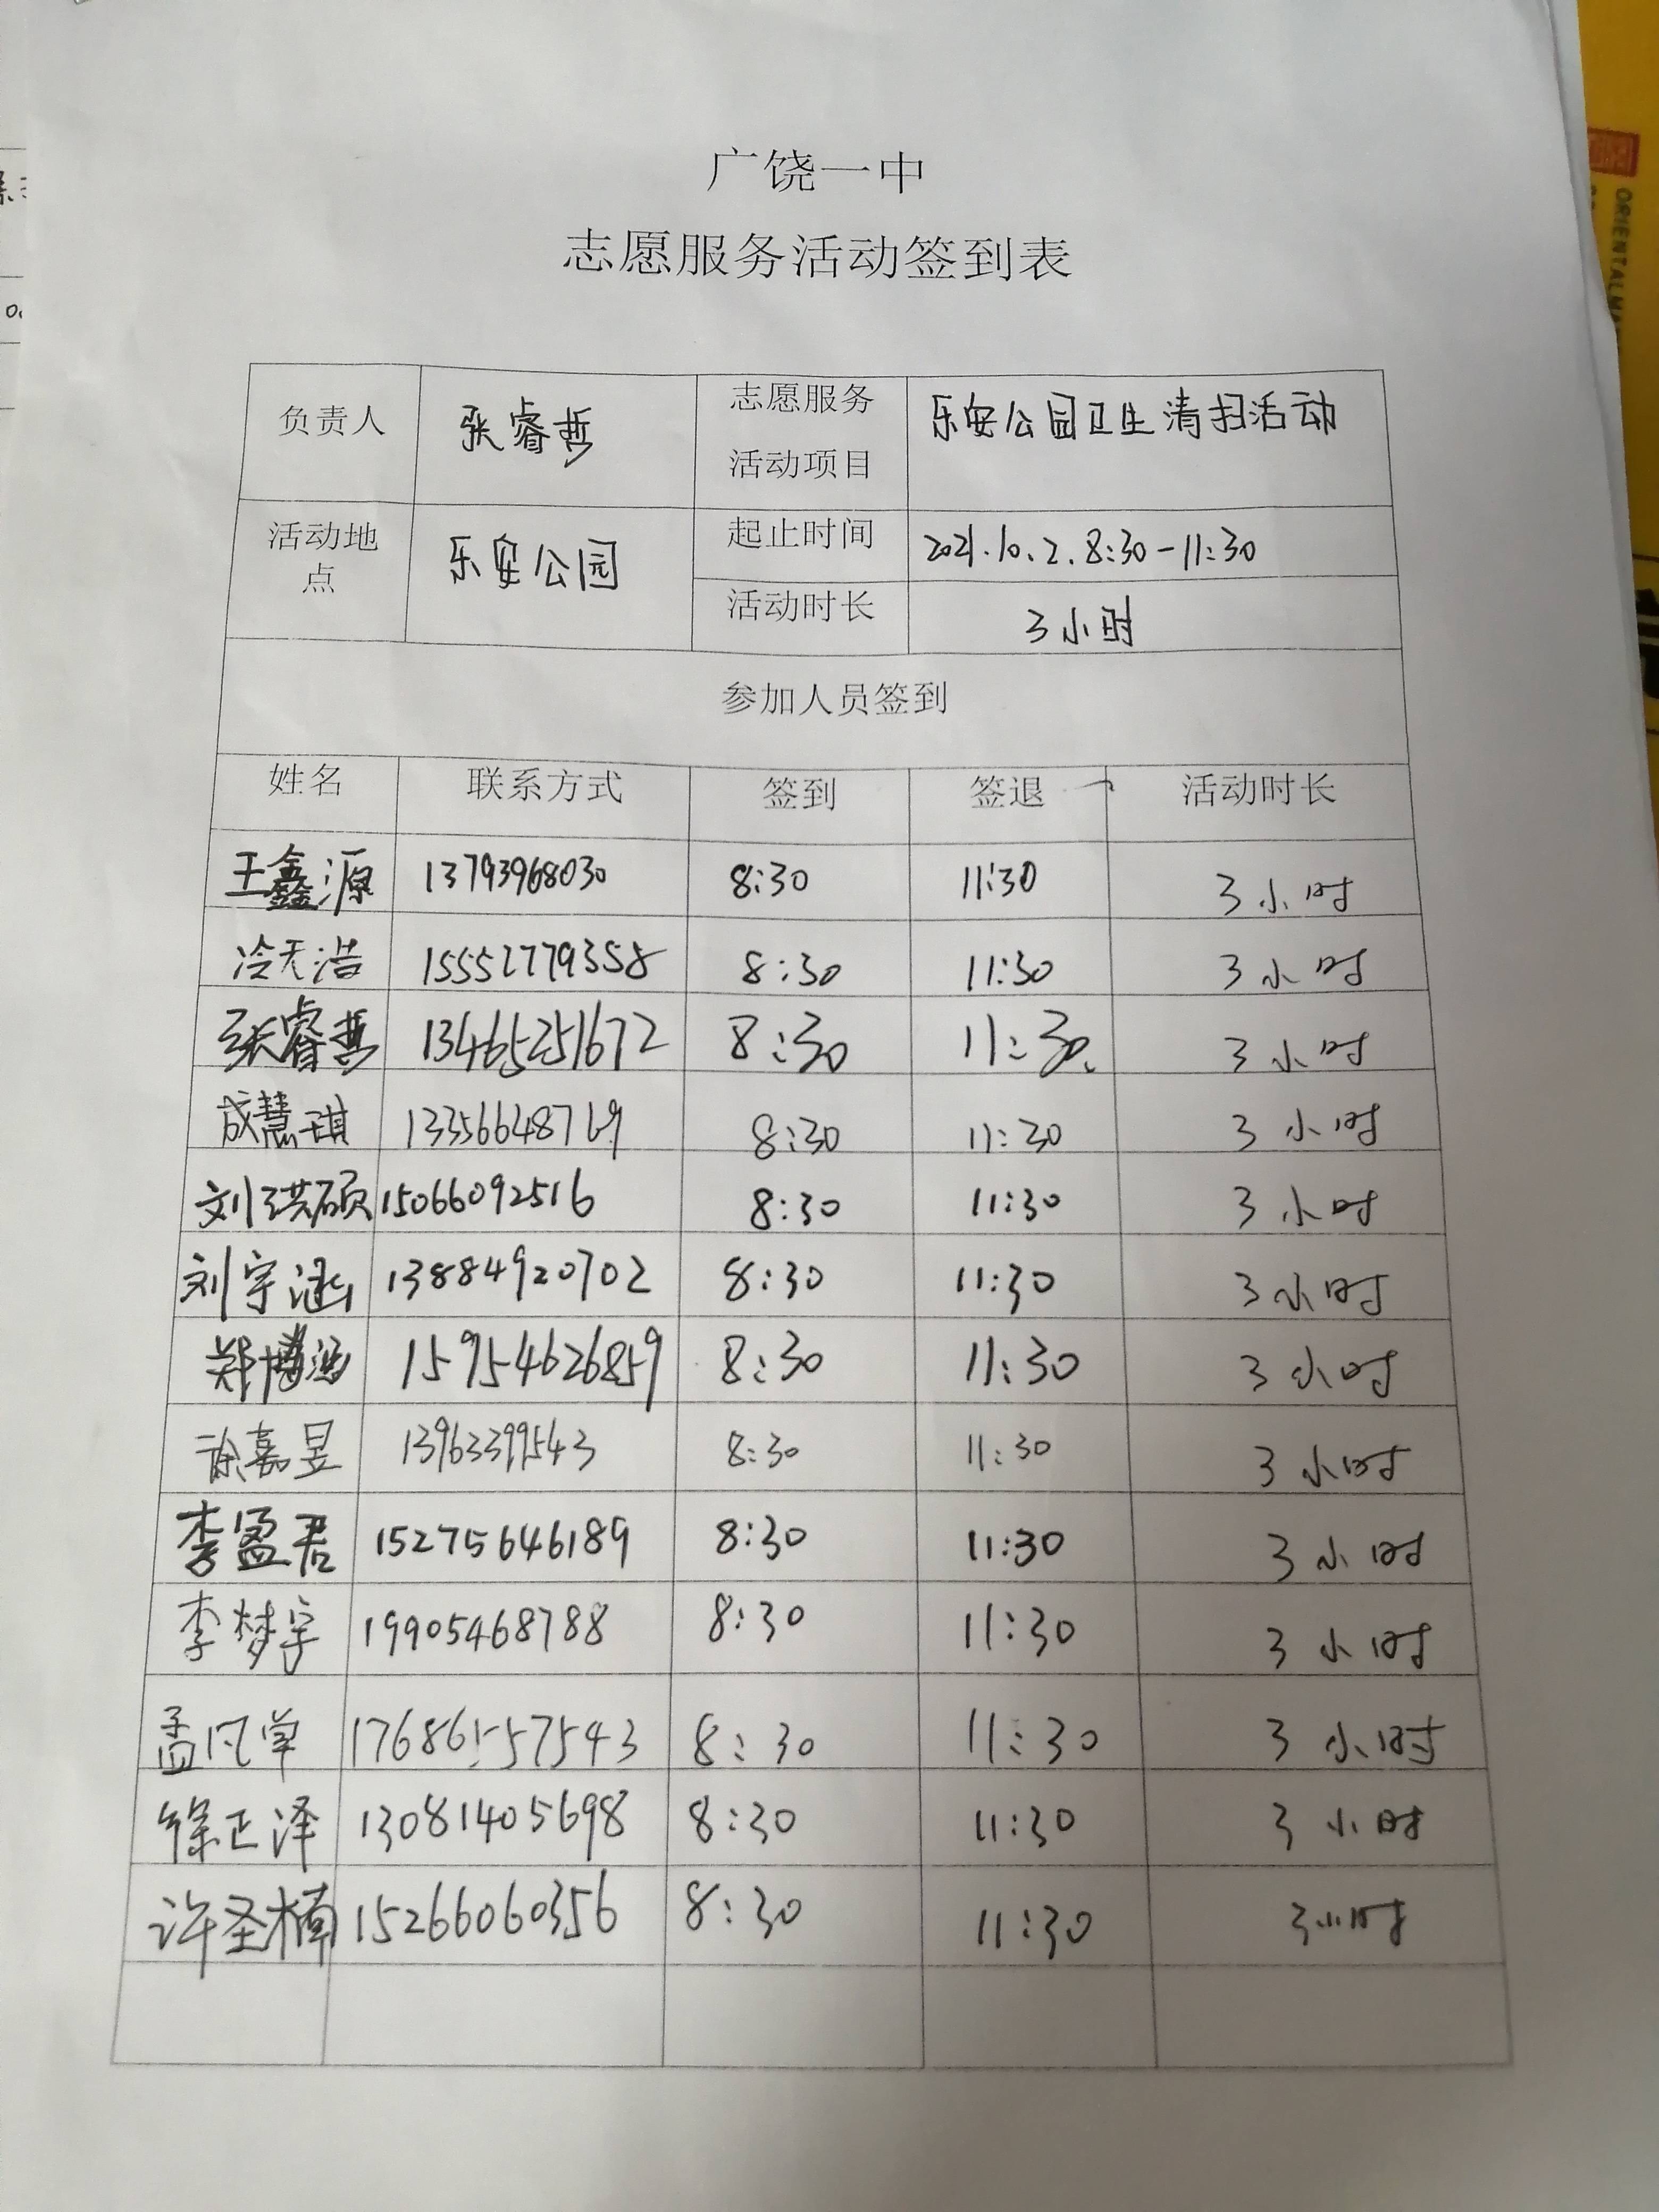 广饶一中
志愿服务活动签到表
负责人 张睿哲 志愿服务活动项目 乐安公园卫生清扫活动
活动地点 乐安公园 起止时间 2021.10.2.8:30-11:30
活动时长 3小时
参加人员签到
姓名 联系方式 签到 签退 活动时长
王鑫源 13793968030 8:30 11:30 3小时
冷天浩 15552779358 8:30 11:30 3小时
张睿哲 13465251672 8:30 11:30 3小时
成慧琪 13356648769 8:30 11:30 3小时
刘洪硕 15066092516 8:30 11:30 3小时
刘宇涵 13884920702 8:30 11:30 3小时
郑博涵 15954626859 8:30 11:30 3小时
徐嘉昱 13963399543 8:30 11:30 3小时
李盈君 15275646189 8:30 11:30 3小时
李梦宇 19905468788 8:30 11:30 3小时
孟凡 17686557543 8:30 11:30 3小时
徐正泽 13081405698 8:30 11:30 3小时
许圣楠 15266060356 8:30 11:30 3小时
ORIENTAL